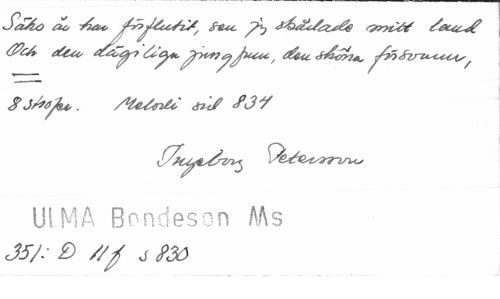 Säks år har förflutit, sen jag skådade mitt land
Och den dägiliga jungfrun, den sköna försvann,
8 strofer. Melodi sid 834
Ingeborg Petersson
ULMA Bondeson Ms
351: D 11 f s 830